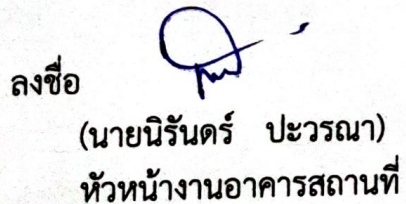 ลงชื่อ
(นายนิรันดร์ ปะวรณา)
หัวหน้างานอาคารสถานที่